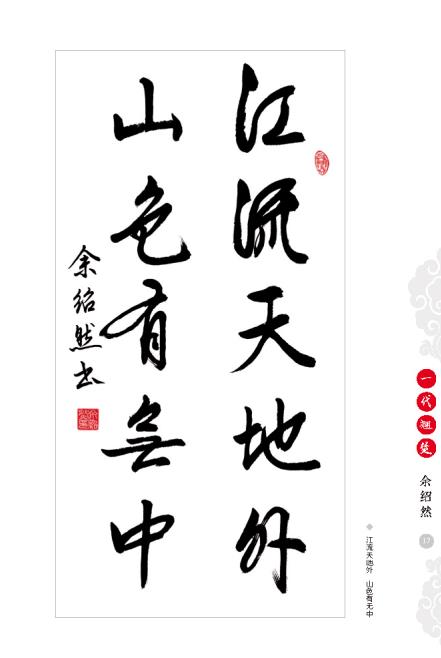 江流天地外
山色有無中
余绍然书
一代翘楚
余绍然
17
江流天地外 山色有无中